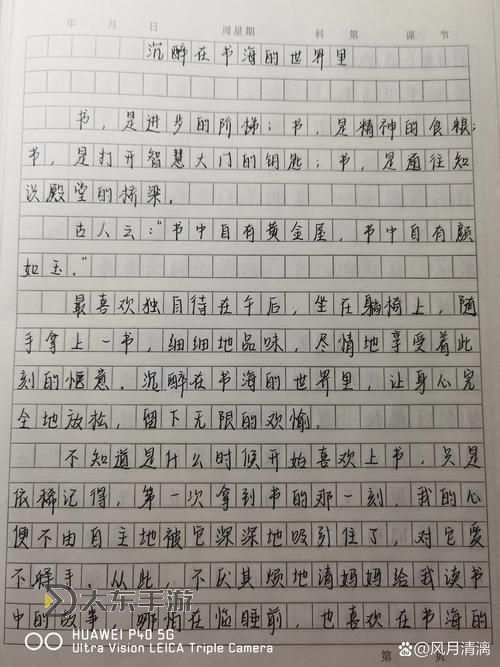 年 月 日 周星期 科第 课 节
沉醉在书海的世界里
书，是进步的阶梯；书，是精神的食粮；
书，是打开智慧大门的钥匙；书，是通往知
识殿堂的桥梁。
古人云：“书中自有黄金屋，书中自有颜
如玉。”
最喜欢独自待在午后，坐在躺椅上，随
手拿上一书，细细地品味，尽情地享受着此
刻的惬意。沉醉在书海的世界里，让身心完
全地放松，留下无限的欢愉。
不知道是什么时候开始喜欢上书，只是
依稀记得，第一次拿到书的那一刻，我的心
便不由自主地被它深深地吸引住了，对它爱
不释手。从此，不厌其烦地请妈妈给我读书
中的故事，哪怕在临睡前，也喜欢在书海的
太东手游
HUAWEI P40 5G
Ultra Vision LEICA Triple Camera
第 页
@风月清漓